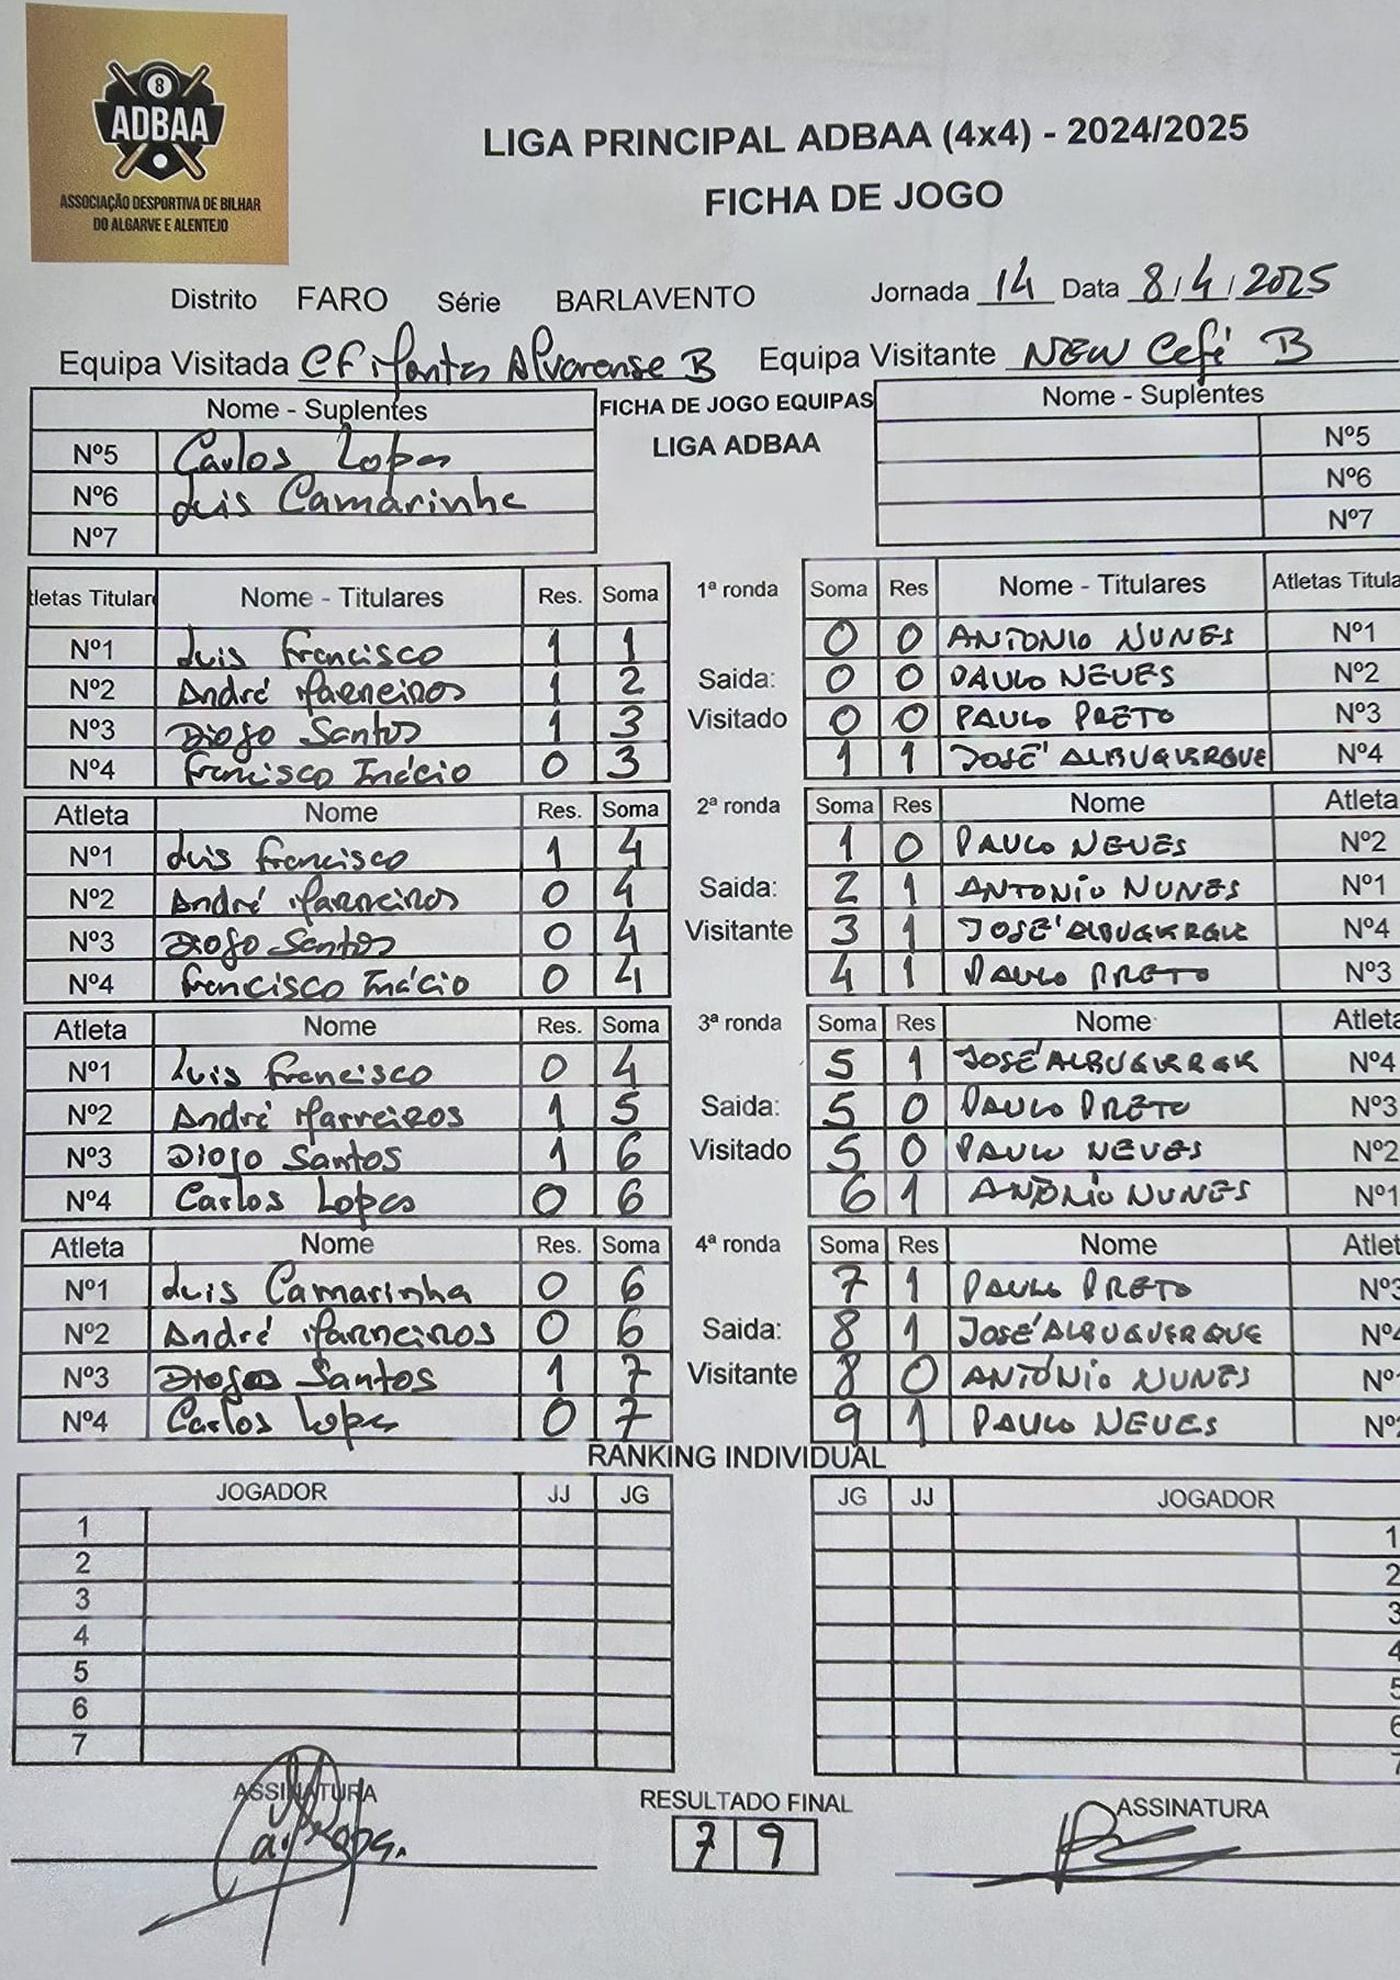 8
ADBAA
ASSOCIAÇÃO DESPORTIVA DE BILHAR
DO ALGARVE E ALENTEJO
LIGA PRINCIPAL ADBAA (4x4) - 2024/2025
FICHA DE JOGO
Distrito FARO Série BARLAVENTO Jornada 14 Data 8/4/2025
Equipa Visitada CF Montes Alvorense B Equipa Visitante NEW Café B
Nome - Suplentes FICHA DE JOGO EQUIPAS Nome - Suplentes
LIGA ADBAA
Nº5 Carlos Lopes Nº5
Nº6 Luis Camarinha Nº6
Nº7 Nº7
tletas Titular Nome - Titulares Res. Soma 1ª ronda Soma Res Nome - Titulares Atletas Titula
Nº1 Luis Francisco 1 1 0 0 ANTONIO NUNES Nº1
Nº2 André Marreiros 1 2 Saida: 0 0 PAULO NEVES Nº2
Nº3 Diogo Santos 1 3 Visitado 0 0 PAULO PRETO Nº3
Nº4 Francisco Inácio 0 3 1 1 JOSÉ ALBUQUERQUE Nº4
Atleta Nome Res. Soma 2ª ronda Soma Res Nome Atleta
Nº1 Luis Francisco 1 4 1 0 PAULO NEVES Nº2
Nº2 André Marreiros 0 4 Saida: 2 1 ANTONIO NUNES Nº1
Nº3 Diogo Santos 0 4 Visitante 3 1 JOSÉ ALBUQUERQUE Nº4
Nº4 Francisco Inácio 0 4 4 1 PAULO PRETO Nº3
Atleta Nome Res. Soma 3ª ronda Soma Res Nome Atleta
Nº1 Luis Francisco 0 4 5 1 JOSÉ ALBUQUERQUE Nº4
Nº2 André Marreiros 1 5 Saida: 5 0 PAULO PRETO Nº3
Nº3 Diogo Santos 1 6 Visitado 5 0 PAULO NEVES Nº2
Nº4 Carlos Lopes 0 6 6 1 ANTÓNIO NUNES Nº1
Atleta Nome Res. Soma 4ª ronda Soma Res Nome Atlet
Nº1 Luis Camarinha 0 6 7 1 PAULO PRETO Nº3
Nº2 André Marreiros 0 6 Saida: 8 1 JOSÉ ALBUQUERQUE Nº4
Nº3 Diogo Santos 1 7 Visitante 8 0 ANTÓNIO NUNES Nº
Nº4 Carlos Lopes 0 7 9 1 PAULO NEVES Nº2
RANKING INDIVIDUAL
JOGADOR JJ JG JG JJ JOGADOR
1 1
2 2
3 3
4 4
5 5
6 6
7 7
ASSINATURA RESULTADO FINAL ASSINATURA
7 9